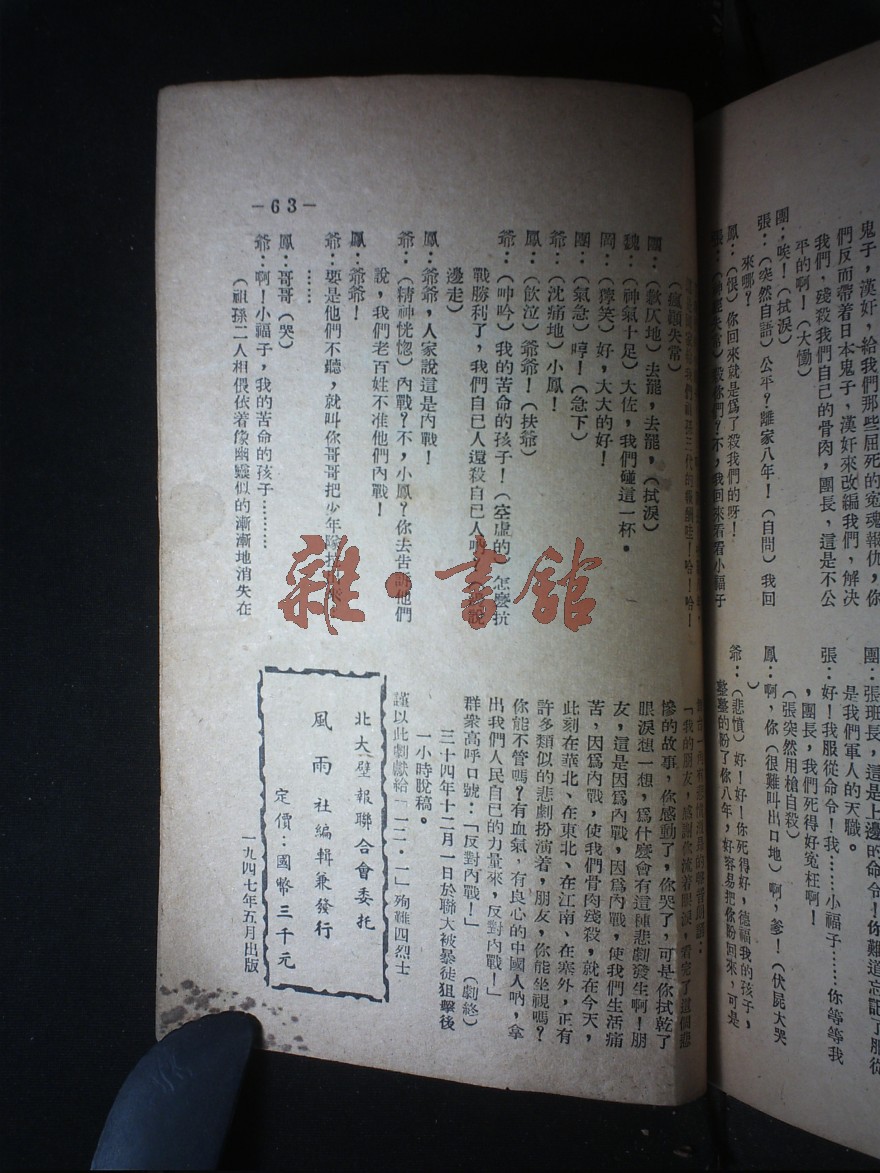 鬼子，漢奸，給我們那些屈死的冤魂報仇，你
們反而帶着日本鬼子，漢奸來改編我們，解決
我們，殘殺我們自己的骨肉，團長，這是不公
平的啊！（大慟）
團：唉！（拭淚）
張：（突然自語）公平？離家八年！（自問）我回
來哪？
鳳：（恨）你回來就是爲了殺我們的呀！
張：（神經失常）殺你們？不，我回來看看小福子
團：張班長，這是上邊的命令！你難道忘記了服從
是我們軍人的天職。
張：好！我服從命令！我……小福子……你等等我
，團長，我們死得好冤枉啊！
（張突然用槍自殺）
鳳：啊，你（很難叫出口地）啊，爹！（伏屍大哭
）
爺：（悲憤）好！好！你死得好，德福我的孩子，
整整的盼了你八年，好容易把你盼回來，可是
－63－
（瘋顚失常）
團：（歉仄地）去罷，去罷，（拭淚）
魏：（神氣十足）大佐，我們碰這一杯。
岡：（獰笑）好，大大的好！
團：（氣急）哼！（急下）
爺：（沈痛地）小鳳！
鳳：（飲泣）爺爺！（扶爺）
爺：（呻吟）我的苦命的孩子！（空虛的）怎麼抗
戰勝利了，我們自己人還殺自己人
邊走）
鳳：爺爺，人家說這是內戰！
爺：（精神恍惚）內戰？不，小鳳？你去告訴他們
說，我們老百姓不准他們內戰！
鳳：爺爺！
爺：要是他們不聽，就叫你哥哥把少年隊
……
鳳：哥哥（哭）
爺：啊！小福子，我的苦命的孩子………
（祖孫二人相偎依着像幽靈似的漸漸地消失在
「我的朋友，感謝你流着眼淚，看完了這個悲
慘的故事，你感動了，你哭了，可是你拭乾了
眼淚想一想，爲什麼會有這種悲劇發生啊！朋
友，這是因爲內戰，因爲內戰，使我們生活痛
苦，因爲內戰，使我們骨肉殘殺，就在今天，
此刻在華北、在東北、在江南、在塞外，正有
許多類似的悲劇扮演着，朋友，你能坐視嗎？
你能不管嗎？有血氣，有良心的中國人吶，拿
出我們人民自己的力量來，反對內戰！」
群衆高呼口號：「反對內戰！」　（劇終）
三十四年十二月一日於聯大被暴徒狙擊後
一小時脫稿。
謹以此劇獻給「一二・一」殉難四烈士
北大壁報聯合會委托
風雨社編輯兼發行
定價：國幣三千元
一九四七年五月出版
雜・書館